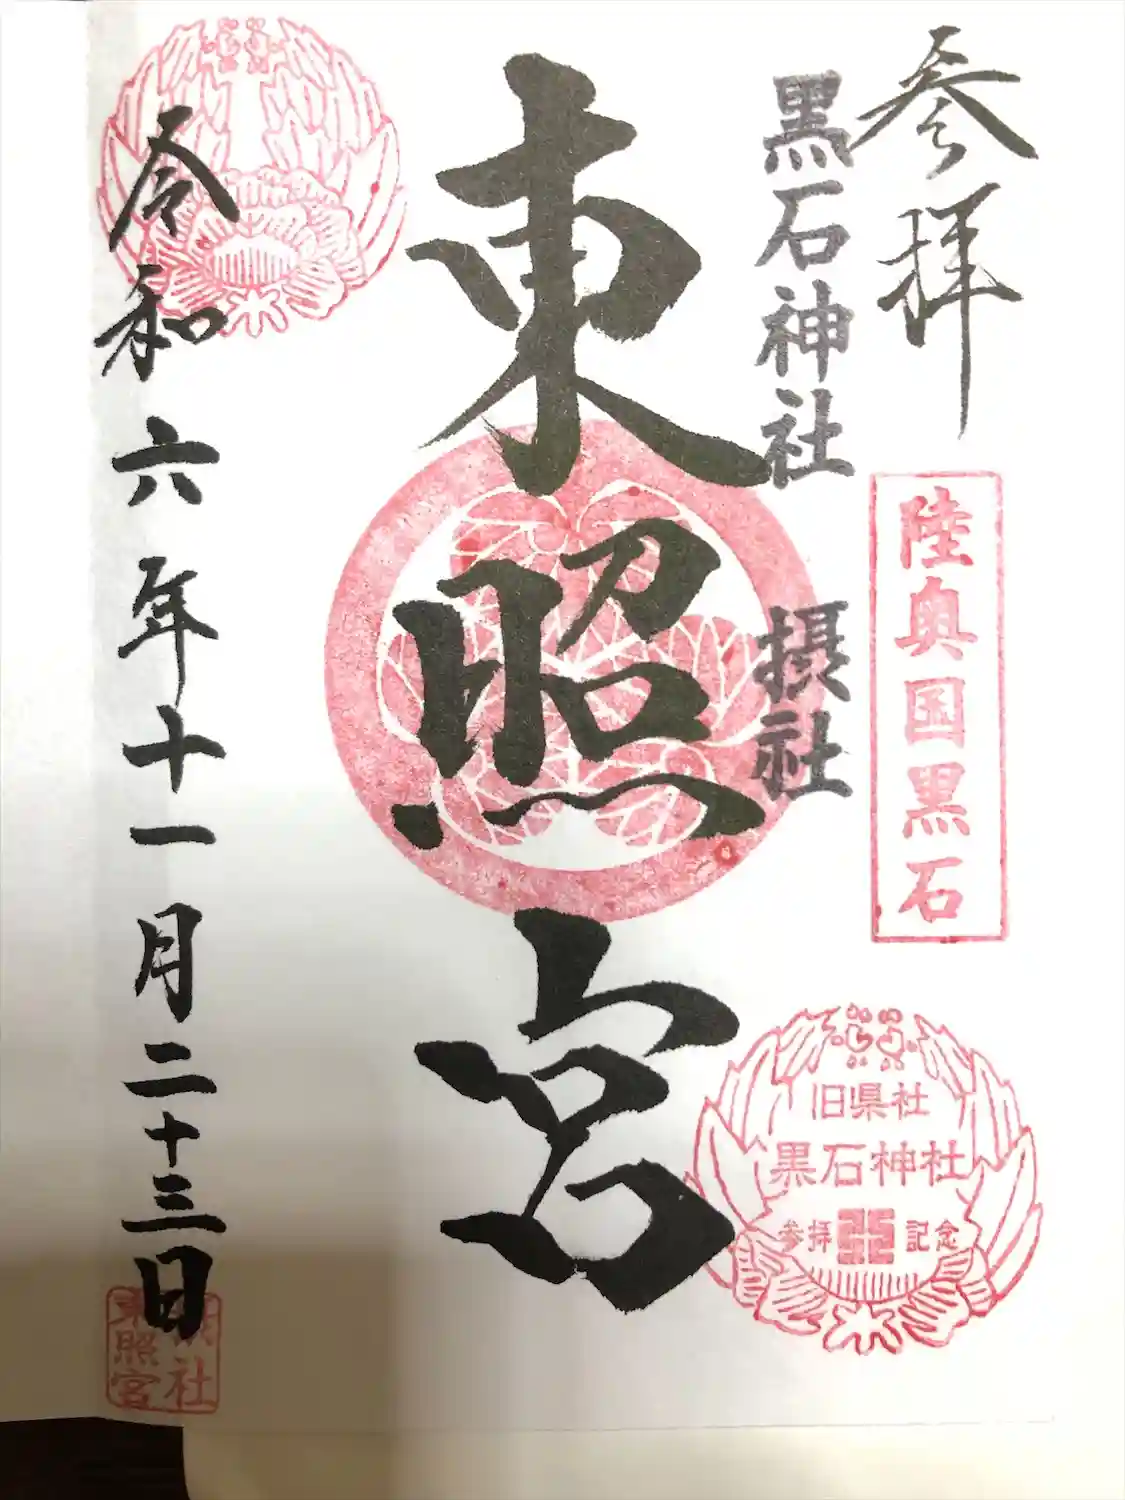 参拝
陸奥国黒石
旧県社
黒石神社
参拝
記念
黒石神社
摂社
東照宮
令和六年十一月二十三日
摂社
東照宮